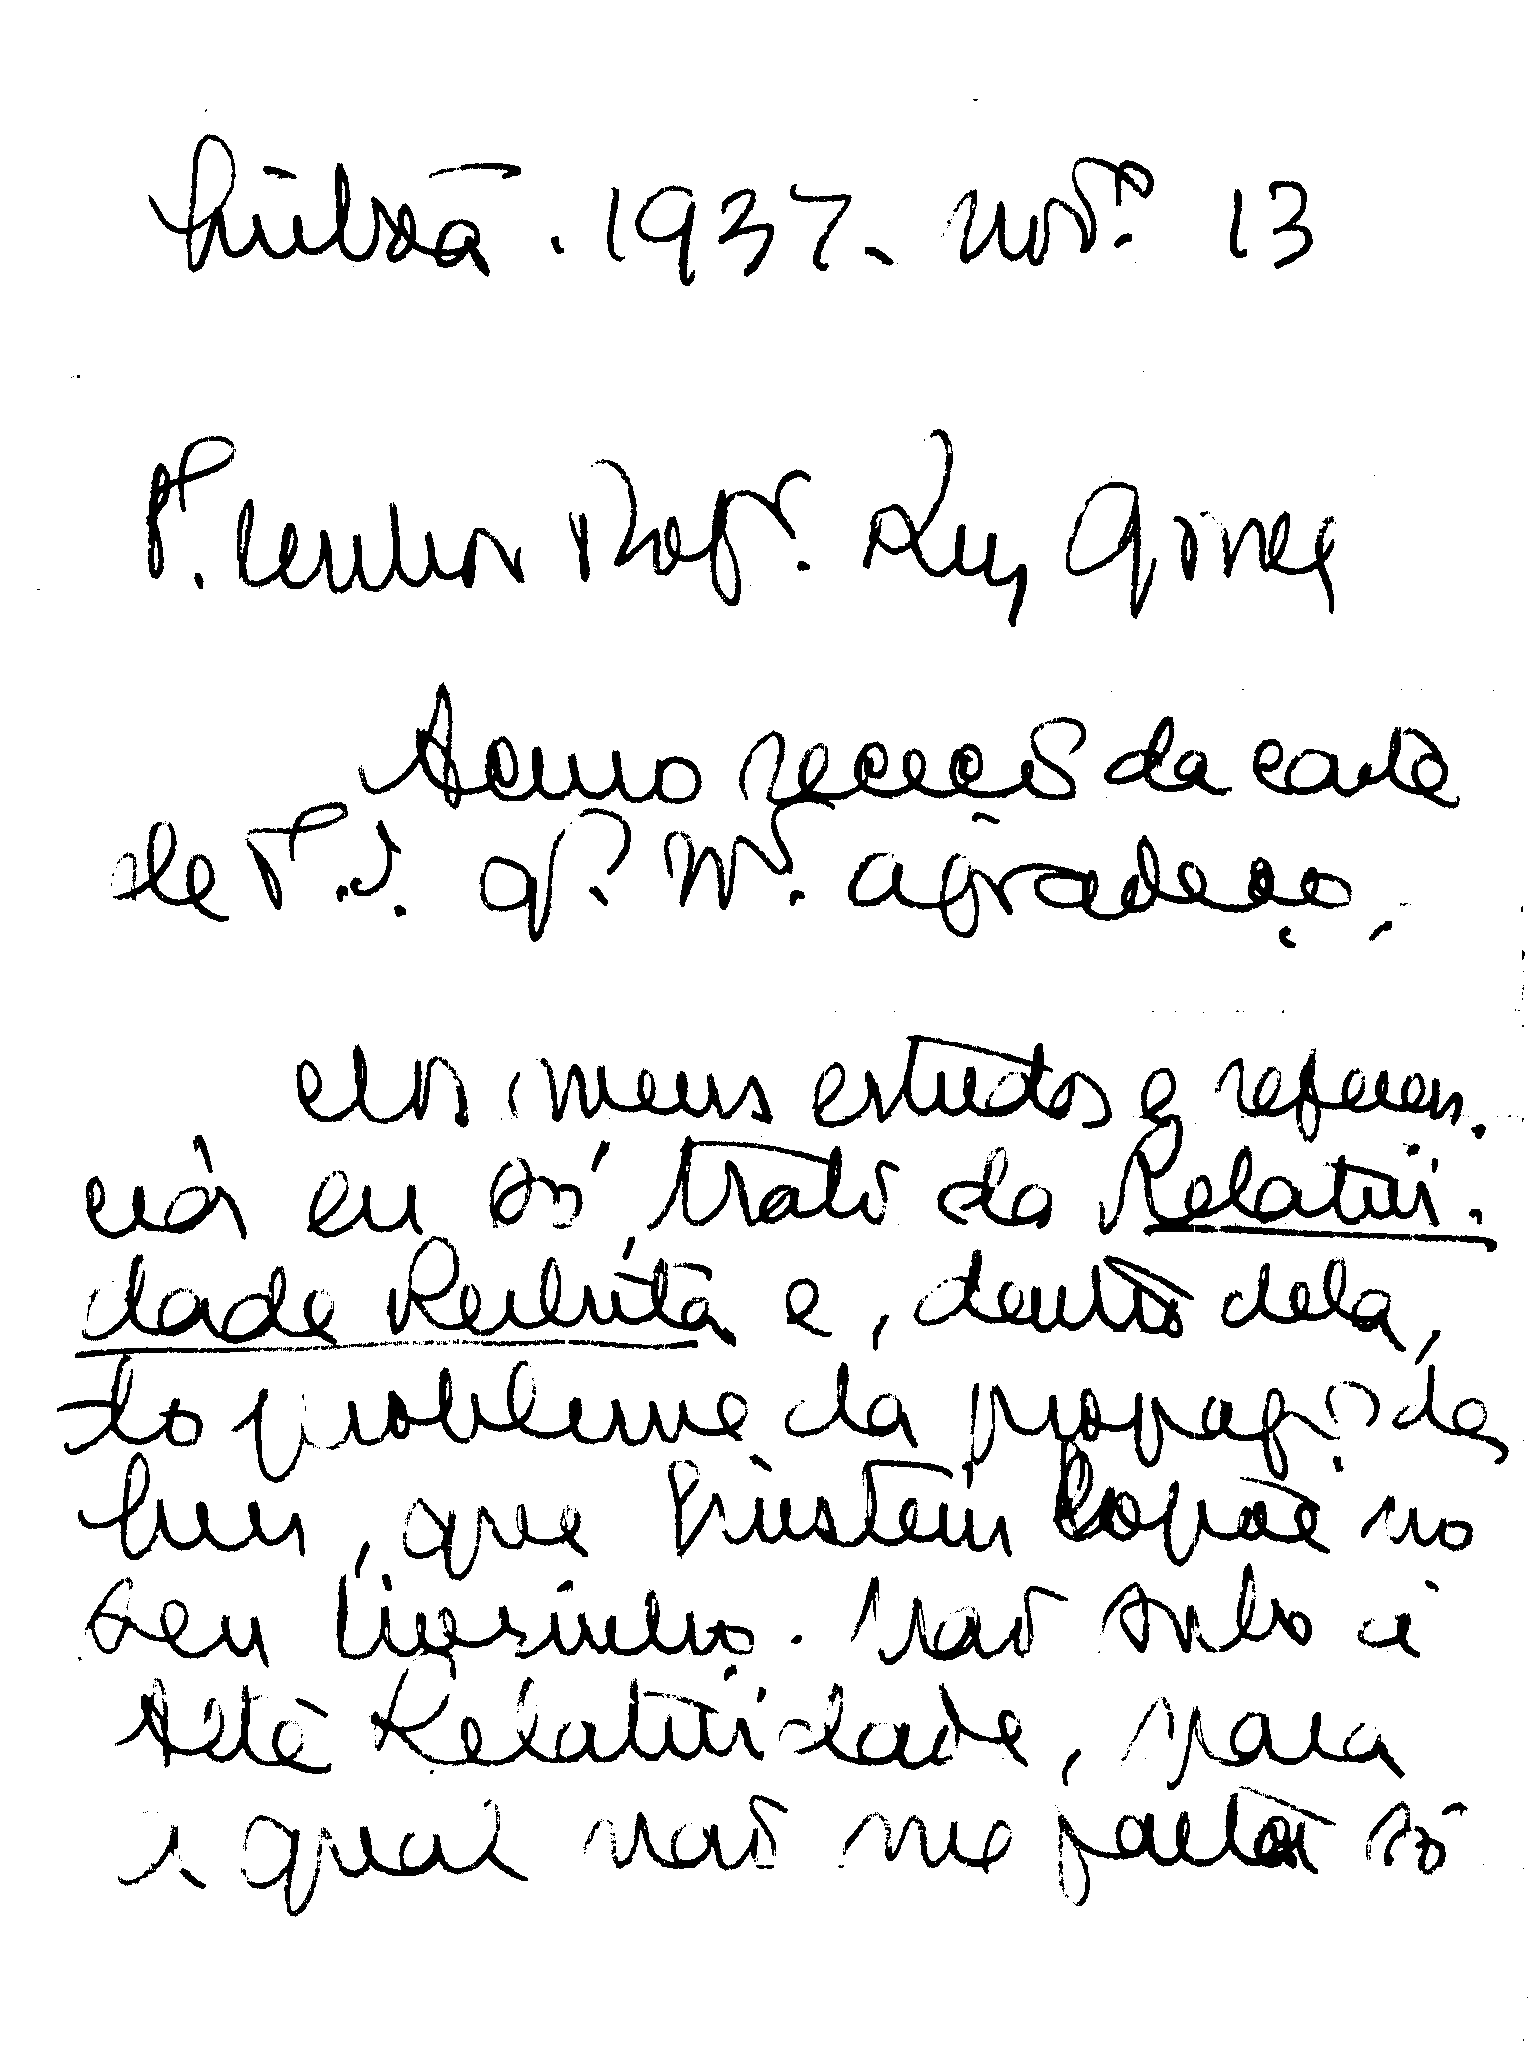 Lisboa. 1937. Nov.º 13
F. Senhor Prof. Ruy Gomes
Acuso receção da carta
de V. S. q. m. agradeço.
Nos meus estudos e referen-
cias eu só trato da Relativi-
dade Restrita e, dentro dela,
do problema da propag. da
luz, que Einstein expõe no
seu livrinho. Não subo à
Alta Relatividade, para
a qual não me faltam só